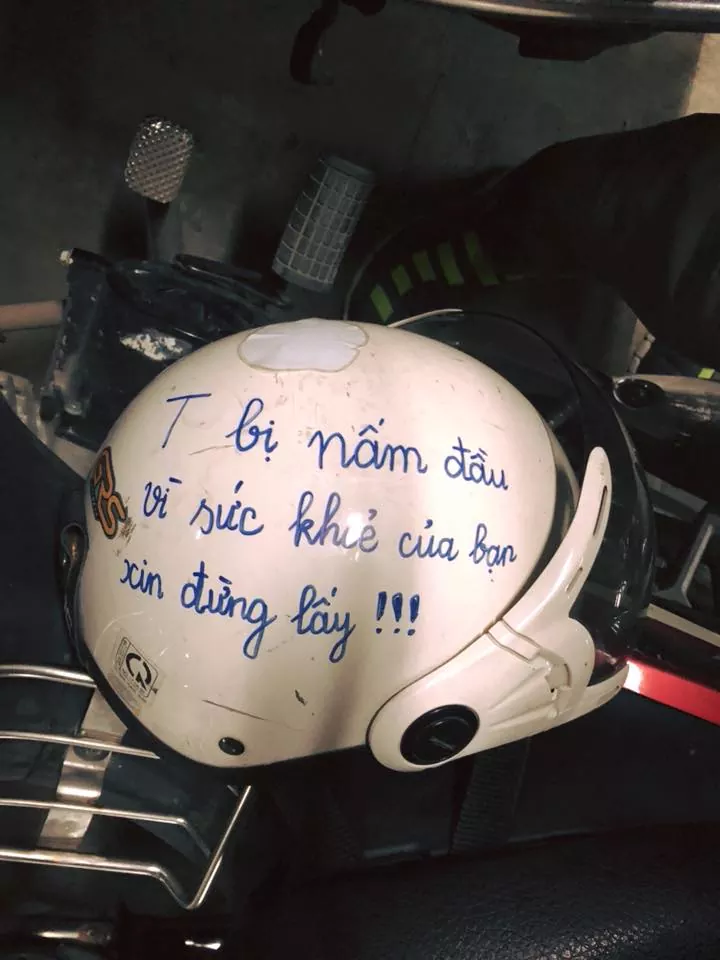 T bị nấm đầu
vì sức khẻ của bạn
xin đừng lấy !!!
RS
CR